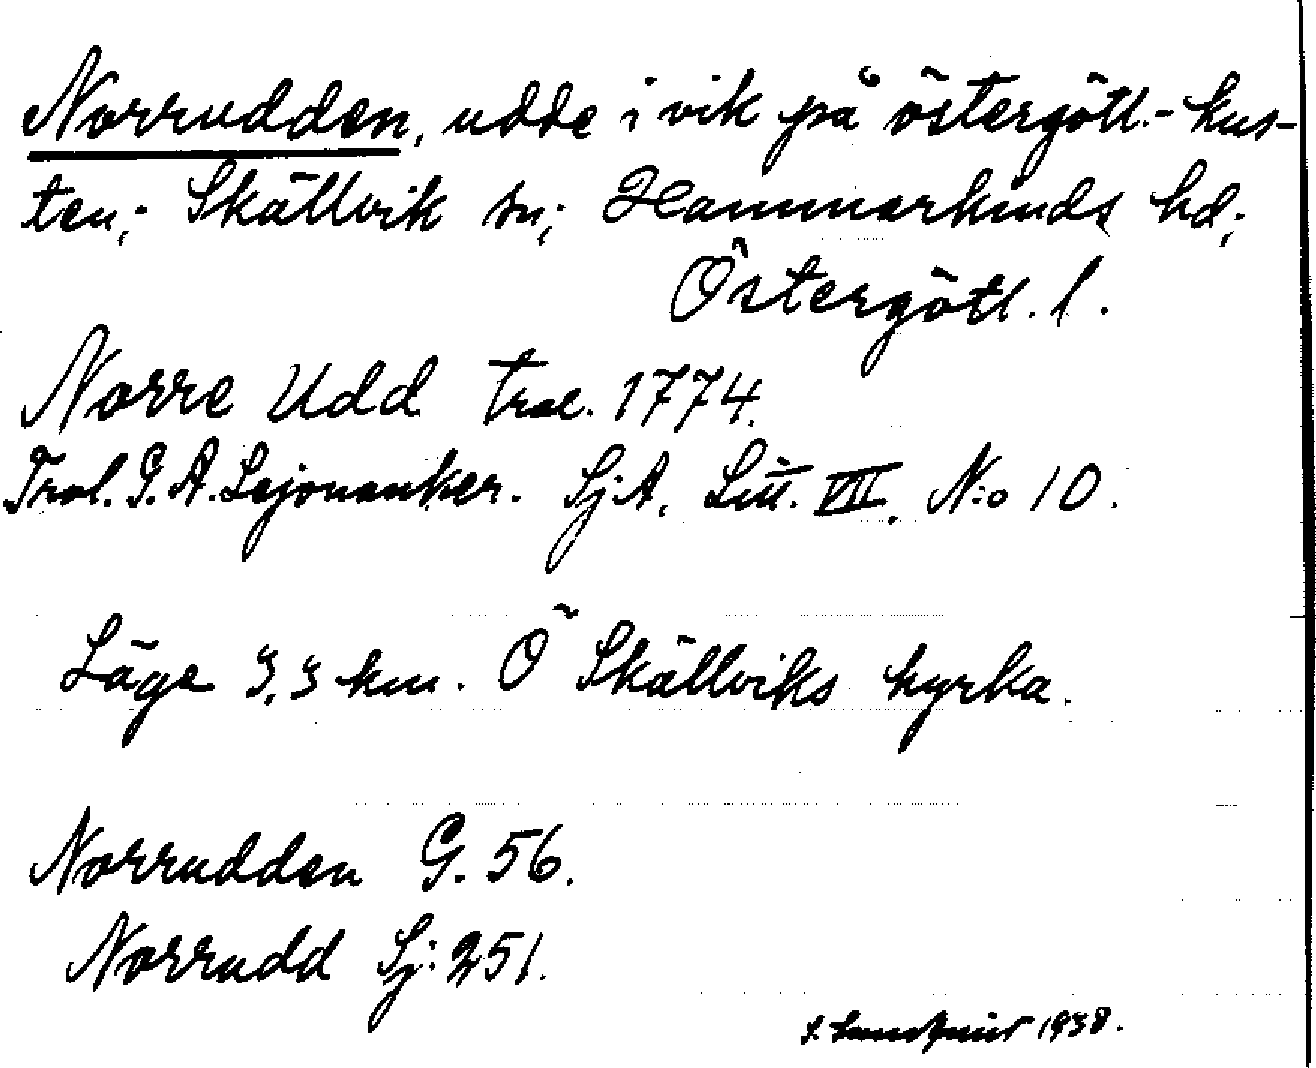 Norrudden, udde i vik på östergötl.- kus-
ten; Skällvik sn; Hammarkinds hd;
Östergötl. l.
Norre Udd trol. 1774.
Trol. G. A. Lejonanker. Sj.A. Litt. VII. N:o 10.
Läge 3,3 km. Ö Skällviks kyrka.
Norrudden G. 56.
Norrudd Sj: 251.
1938.